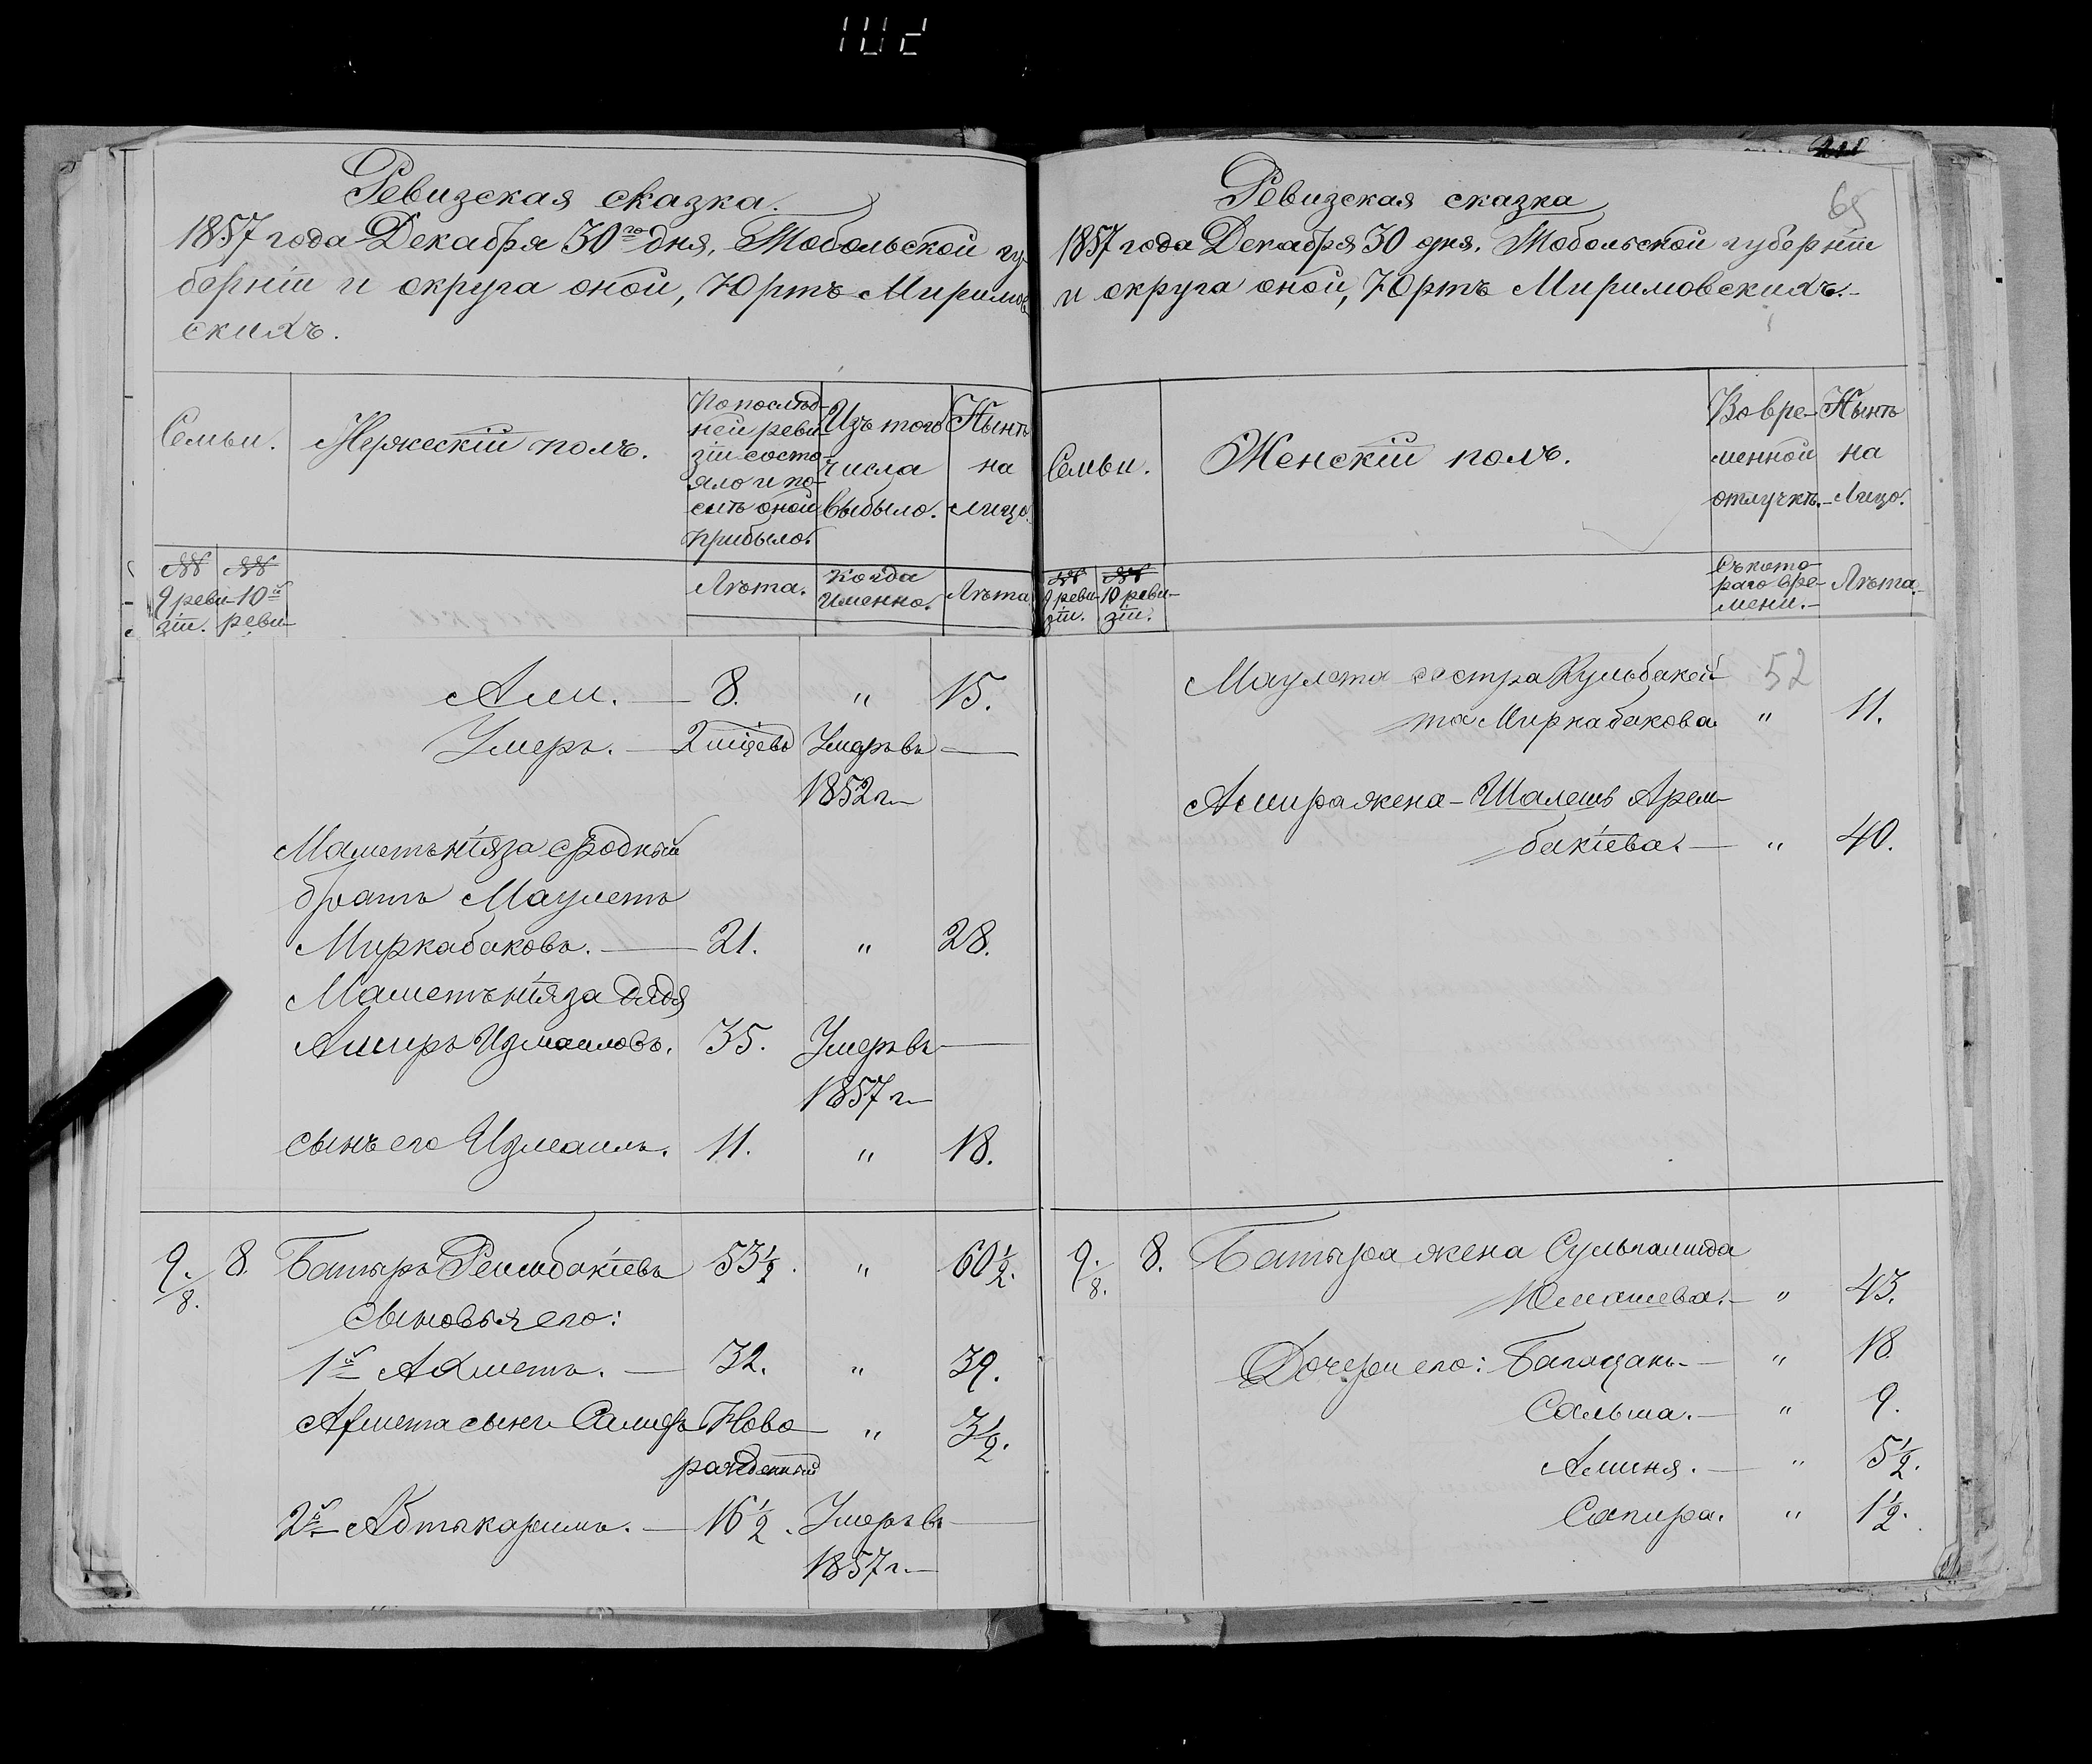 102
Ревизская сказка.
1857 года Декабря 30го дня, Тобольской гу-
берніи и округа оной, Юртъ Миримов
скихъ.
Семьи.
Мужескій полъ.
По послѣд-
ней реви-
зіи состо-
яло и по-
слѣ оной
прибыло.
Изъ того
числа
выбыло.
Нынѣ
на
лицо.
№№
9 реви-
зіи.
№№
10й
реви-
Лѣта.
Когда
именно.
Лѣта
Али. — 8. " 15.
Умеръ. — 2 Умеръ въ —
1852 г.—
Маметьніяза сродный
братъ Маулетъ
Миркабаковъ. — 21. " 28.
Маметьніяза дядя
Аширъ Измаиловъ. 35. Умеръ въ —
1857 г—
сынъ его Измаилъ. 11. " 18.
9./8. 8. Батыръ Решбакіевъ 53½. " 60½.
Сыновья его:
1й Ахметъ. — 32. " 39.
Ахмета сынъ Самиръ Ново " 3½.
рожденный
2й— Абтыкаримъ. — 16½. Умеръ въ —
1857 г.—
Ревизская сказка
65
1857 года Декабря 30 дня, Тобольской губерніи
и округа оной, Юртъ Миримовскихъ.-
Семьи.
Женскій полъ.
Во вре-
менной
отлучкѣ.-
Нынѣ
на
Лицо.
№№
9 реви-
зіи.
№№
10 реви-
зіи.
Съ кото-
раго вре-
мени.-
Лѣта.
Маулета сестра Кульбакей 52
та Миркабакова " 11.
Ашира жена - Шалешь Арем-
бакіева. — " 40.
9./8. 8. Батыра жена
Юмашева. — " 43.
Дочери его: — " 18
Сальма. — " 9.
Аминя. — " 5½.
Сапира. " 1½.